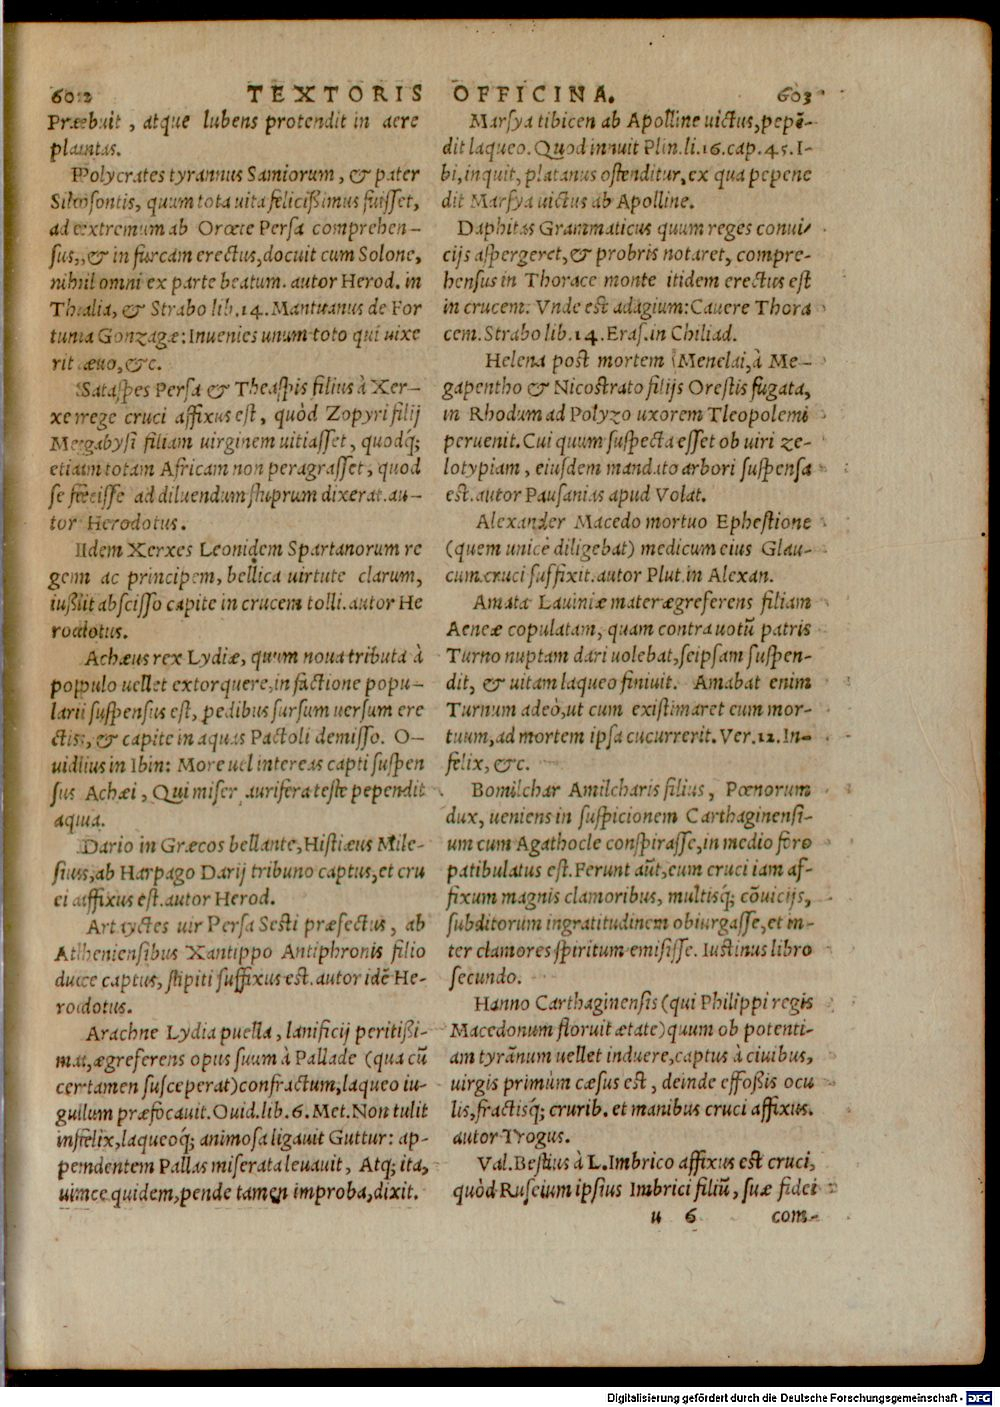 602 TEXTORIS
Præbuit, atque lubens protendit in aere
plantas.
Polycrates tyrannus Samiorum, & pater
Silosontis, quum tota uita felicißimus fuisset,
ad extremum ab Orœte Persa comprehen-
sus, & in furcam erectus, docuit cum Solone,
nihil omni ex parte beatum. autor Herod. in
Thalia, & Strabo lib. 14. Mantuanus de For
tuna Gonzagæ: Inuenies unum toto qui uixe
rit æuo, &c.
Sataspes Persa & Theaspis filius à Xer-
xe rege cruci affixus est, quòd Zopyri filij
Megabysi filiam uirginem uitiasset, quodq́;
etiam totam Africam non peragrasset, quod
se fecisse ad diluendum stuprum dixerat. au-
tor Herodotus.
Idem Xerxes Leonidem Spartanorum re
gem ac principem, bellica uirtute clarum,
iußit abscisso capite in crucem tolli. autor He
rodotus.
Achæus rex Lydiæ, quum noua tributa à
populo uellet extorquere, in factione popu-
lari suspensus est, pedibus sursum uersum ere
ctis, & capite in aquas Pactoli demisso. O-
uidius in Ibin: More uel intereas capti suspen
sus Achæi, Qui miser aurifera teste pependit
aqua.
Dario in Græcos bellante, Histiæus Mile-
sius, ab Harpago Darij tribuno captus, et cru
ci affixus est. autor Herod.
Artyctes uir Persa Sesti præfectus, ab
Atheniensibus Xantippo Antiphronis filio
duce captus, stipiti suffixus est. autor idē He-
rodotus.
Arachne Lydia puella, lanificij peritißi-
ma, ægreferens opus suum à Pallade (qua cū
certamen susceperat) confractum, laqueo iu-
gulum præfocauit. Ouid. lib. 6. Met. Non tulit
infelix, laqueoq́; animosa ligauit Guttur: ap-
pendentem Pallas miserata leuauit, Atq; ita,
uiuce quidem, pende tamen improba, dixit.
OFFICINA. 603
Marsya tibicen ab Apolline uictus, pepē-
dit laqueo. Quod innuit Plin. li. 16. cap. 45. I-
bi, inquit, platanus ostenditur, ex qua pepene
dit Marsya uictus ab Apolline.
Daphitas Grammaticus quum reges conui-
cijs aspergeret, & probris notaret, compre-
hensus in Thorace monte itidem erectus est
in crucem. Vnde est adagium: Cauere Thora
cem. Strabo lib. 14. Eras. in Chiliad.
Helena post mortem Menelai, à Me-
gapentho & Nicostrato filijs Orestis fugata,
in Rhodum ad Polyzo uxorem Tleopolemi
peruenit. Cui quum suspecta esset ob uiri ze-
lotypiam, eiusdem mandato arbori suspensa
est. autor Pausanias apud Volat.
Alexander Macedo mortuo Ephestione
(quem unicè diligebat) medicum eius Glau-
cum cruci suffixit. autor Plut. in Alexan.
Amata Lauiniæ mater ægreferens filiam
Aeneæ copulatam, quam contra uotū patris
Turno nuptam dari uolebat, seipsam suspen-
dit, & uitam laqueo finiuit. Amabat enim
Turnum adeò, ut cum existimaret eum mor-
tuum, ad mortem ipsa cucurrerit. Ver. 12. In-
felix, &c.
Bomilchar Amilcharis filius, Pœnorum
dux, ueniens in suspicionem Carthaginensi-
um cum Agathocle conspirasse, in medio foro
patibulatus est. Ferunt aūt, cum cruci iam af-
fixum magnis clamoribus, multisq́; cōuicijs,
subditorum ingratitudinem obiurgasse, et in-
ter clamores spiritum emisisse. Iustinus libro
secundo.
Hanno Carthaginensis (qui Philippi regis
Macedonum floruit ætate) quum ob potenti-
am tyrānum uellet induere, captus à ciuibus,
uirgis primùm cæsus est, deinde effoßis ocu
lis, fractisq́; crurib. et manibus cruci affixus.
autor Trogus.
Val. Bestius à L. Imbrico affixus est cruci,
quòd Ruscium ipsius Imbrici filiū, suæ fidei
u 6 com-
Digitalisierung gefördert durch die Deutsche Forschungsgemeinschaft - DFG